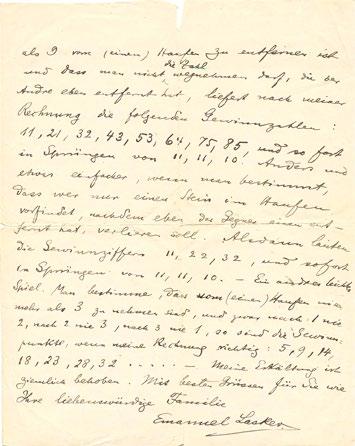 als 9 vom (einen) Haufen zu entfernen ist
die Zahl
und dass man nicht wegnehmen darf, die der
Andre eben entfernt hat, liefert nach meiner
Rechnung die folgenden Gewinnzahlen:
11, 21, 32, 43, 53, 64, 75, 85, und so fort
in Sprüngen von 11, 11, 10. Anders und
etwas einfacher, wenn man bestimmt,
dass wer nur einen Stein im Haufen
vorfindet, nachdem eben der Gegner einen ent-
fernt hat, verlieren soll. Alsdann lauten
die Gewinnziffern 11, 22, 32, und sofort
in Sprüngen von 11, 11, 10. — Ein andres leichtes
Spiel. Man bestimme, dass vom (einen) Haufen nie
mehr als 3 zu nehmen sind, und zwar nach 1 nie
2, nach 2 nie 3, nach 3 nie 1, so sind die Gewinn-
punkte, wenn meine Rechnung richtig: 5, 9, 14,
18, 23, 28, 32 ..... — Meine Erkältung ist
ziemlich behoben. Mit besten Grüssen für Sie wie
Ihre liebenswürdige Familie
Emanuel Lasker